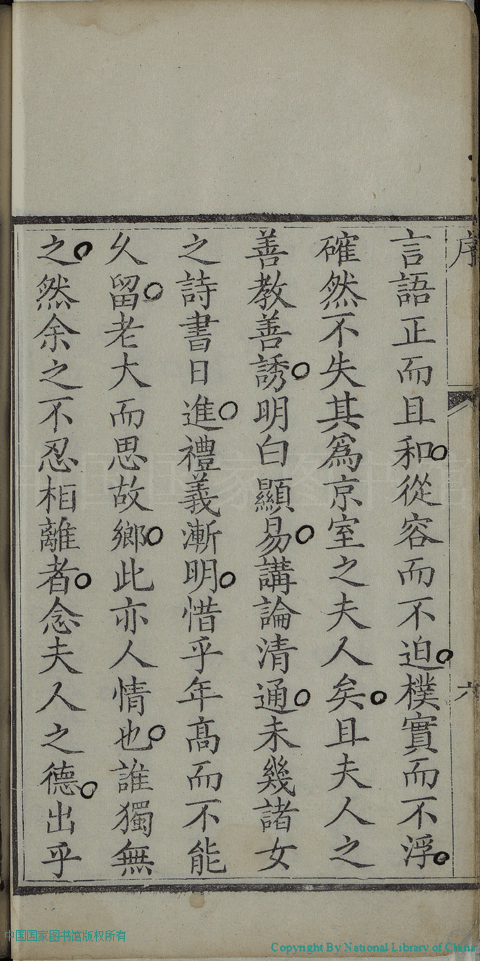 序
六
言語正而且和從容而不迫樸實而不浮
確然不失其爲京室之夫人矣且夫人之
善教善誘明白顯易講論清通未幾諸女
之詩書日進禮義漸明惜乎年高而不能
久留老大而思故鄉此亦人情也誰獨無
之然余之不忍相離者念夫人之德出乎
中国国家图书馆版权所有
Copyright By National Library of China